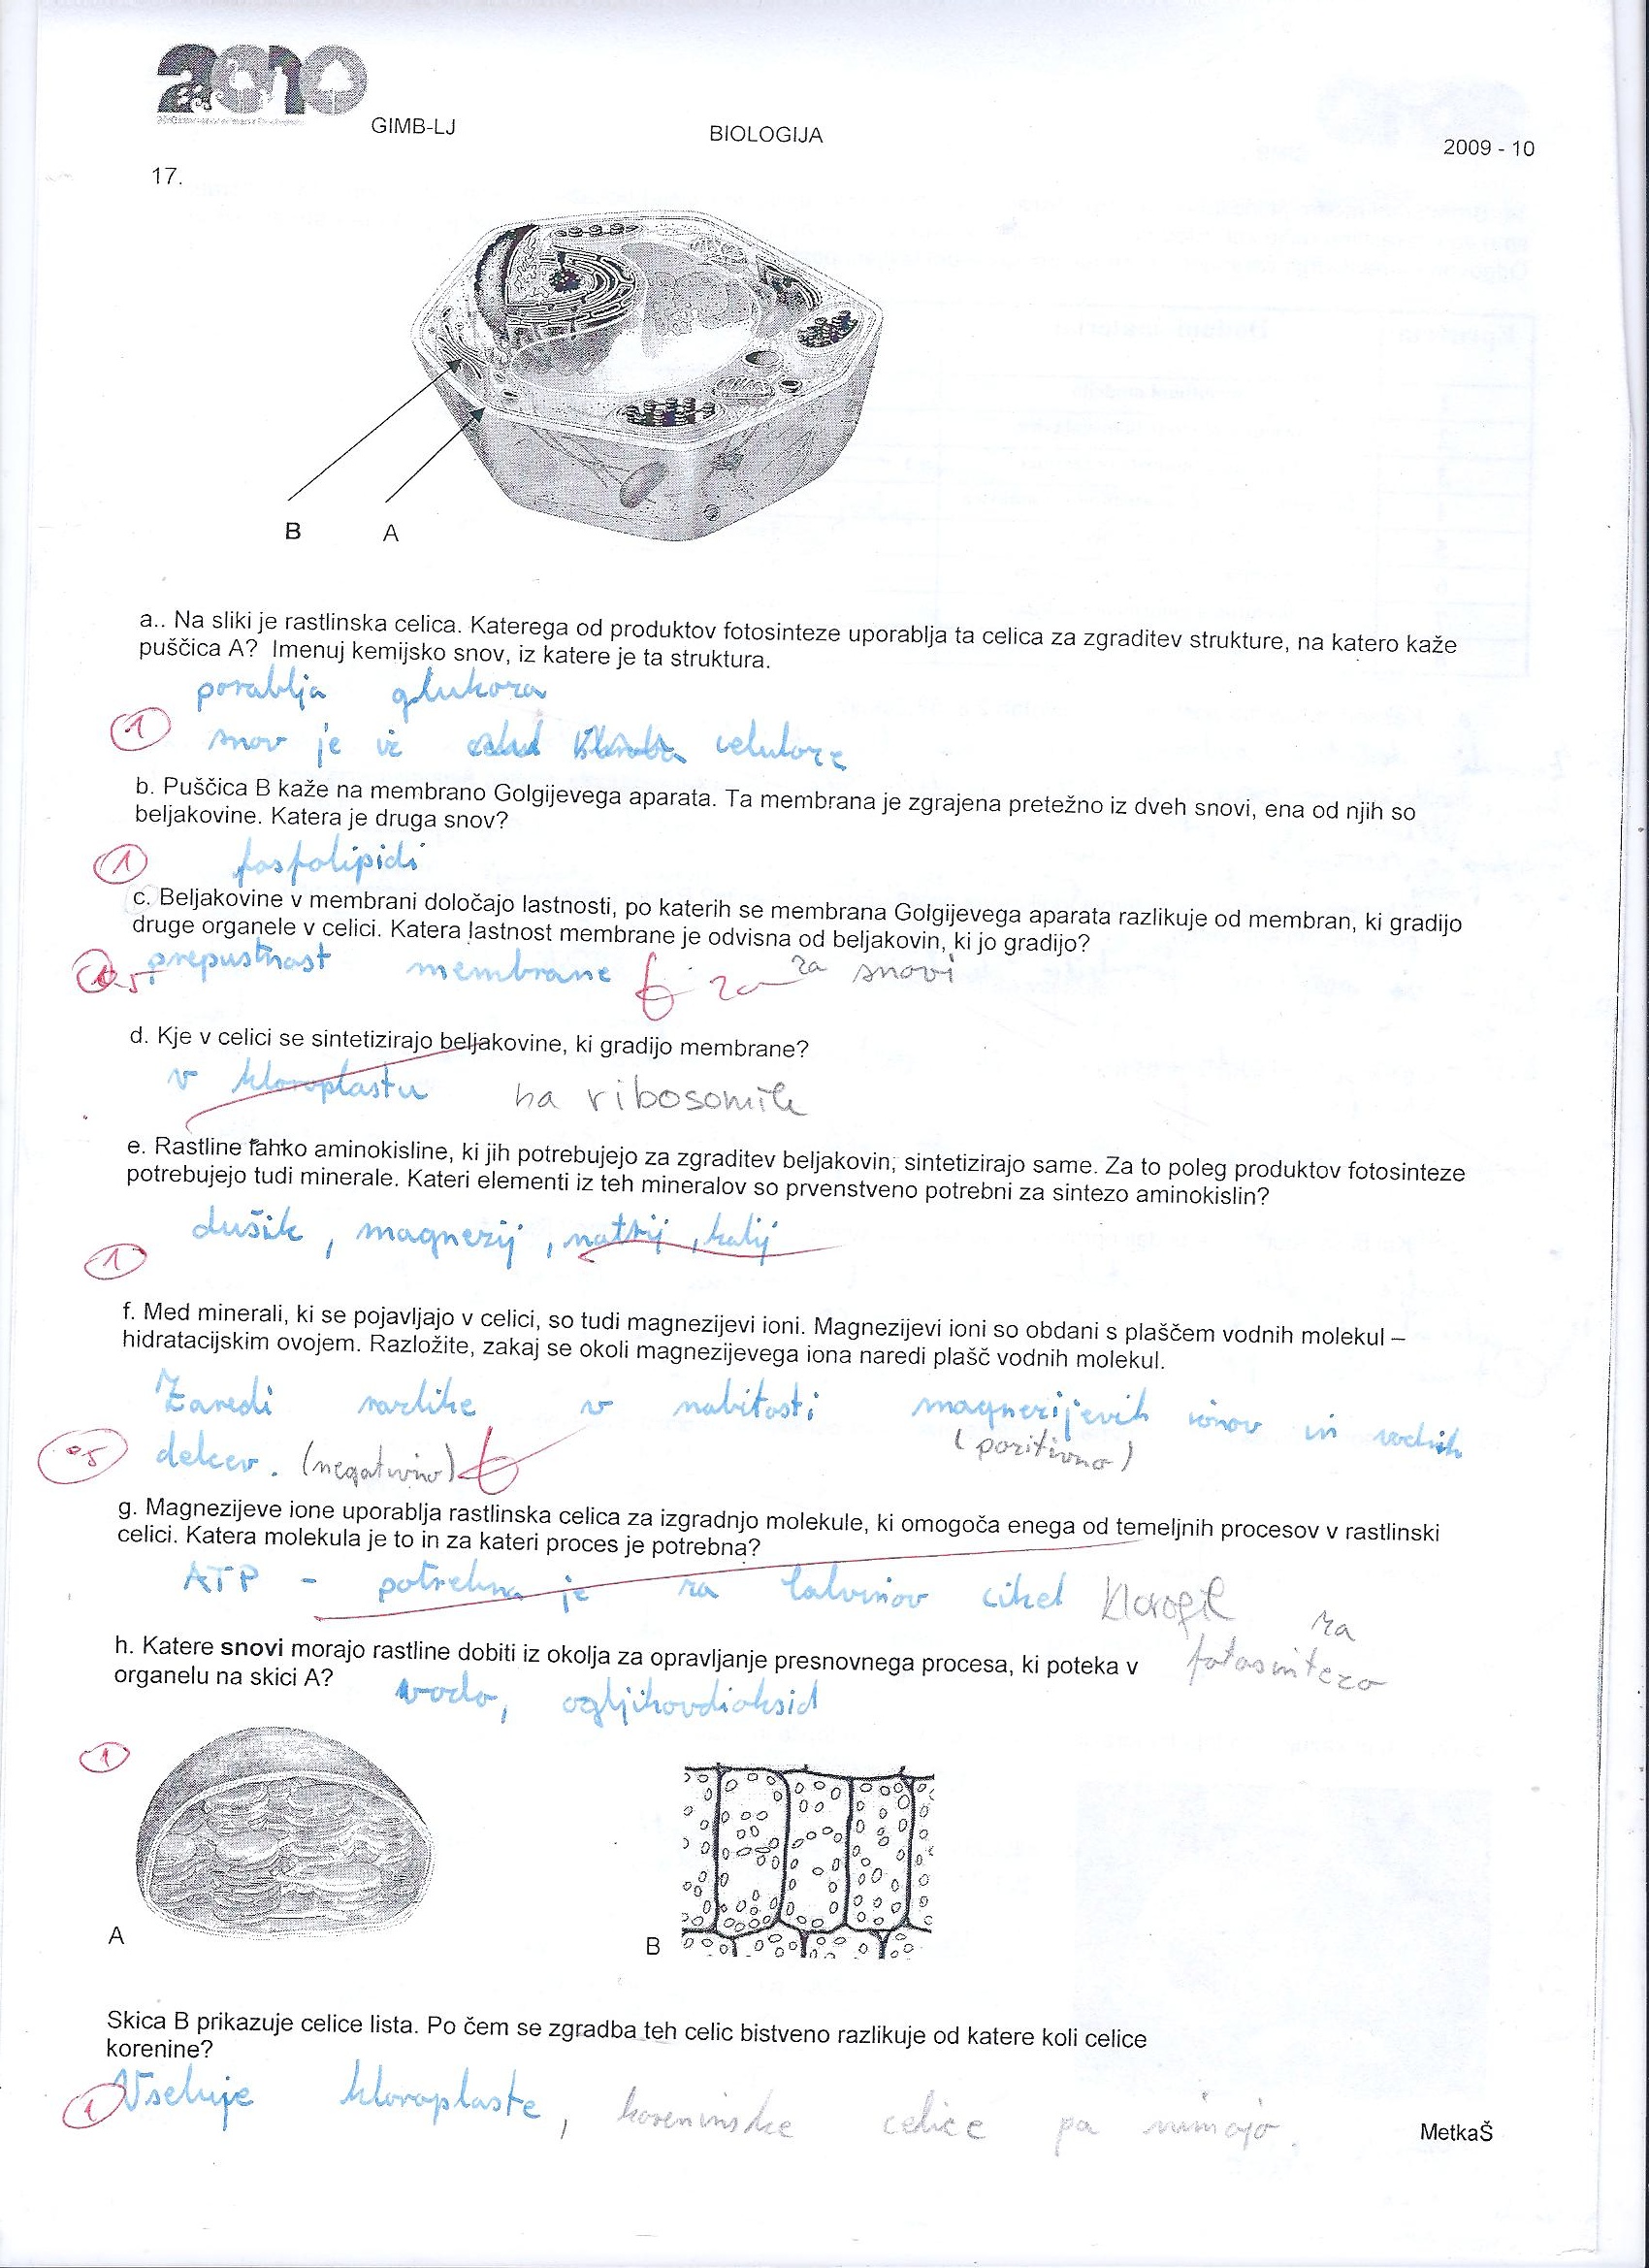 2010
GIMB-LJ
BIOLOGIJA
2009 - 10
17.
B
A
a.. Na sliki je rastlinska celica. Katerega od produktov fotosinteze uporablja ta celica za zgraditev strukture, na katero kaže
puščica A? Imenuj kemijsko snov, iz katere je ta struktura.
porablja glukozo
1
snov je iz celuloze
b. Puščica B kaže na membrano Golgijevega aparata. Ta membrana je zgrajena pretežno iz dveh snovi, ena od njih so
beljakovine. Katera je druga snov?
1
fosfolipidi
c. Beljakovine v membrani določajo lastnosti, po katerih se membrana Golgijevega aparata razlikuje od membran, ki gradijo
druge organele v celici. Katera lastnost membrane je odvisna od beljakovin, ki jo gradijo?
prepustnost membrane za za snovi
d. Kje v celici se sintetizirajo beljakovine, ki gradijo membrane?
v kloroplastu na ribosomih
e. Rastline lahko aminokisline, ki jih potrebujejo za zgraditev beljakovin, sintetizirajo same. Za to poleg produktov fotosinteze
potrebujejo tudi minerale. Kateri elementi iz teh mineralov so prvenstveno potrebni za sintezo aminokislin?
dušik, magnezij, natrij, kalij
1
f. Med minerali, ki se pojavljajo v celici, so tudi magnezijevi ioni. Magnezijevi ioni so obdani s plaščem vodnih molekul –
hidratacijskim ovojem. Razložite, zakaj se okoli magnezijevega iona naredi plašč vodnih molekul.
Zaredi razlike v nabitosti magnezijevih ionov in vodnih
(pozitivno)
05 delcev. (negativno)
g. Magnezijeve ione uporablja rastlinska celica za izgradnjo molekule, ki omogoča enega od temeljnih procesov v rastlinski
celici. Katera molekula je to in za kateri proces je potrebna?
ATP - potrebna je za calvinov cikel klorofil za
fotosintezo
h. Katere snovi morajo rastline dobiti iz okolja za opravljanje presnovnega procesa, ki poteka v
organelu na skici A?
vodo, ogljikovdioksid
1
A
B
Skica B prikazuje celice lista. Po čem se zgradba teh celic bistveno razlikuje od katere koli celice
korenine?
1 Vsebuje kloroplaste, koreninske celice pa nimajo.
MetkaŠ